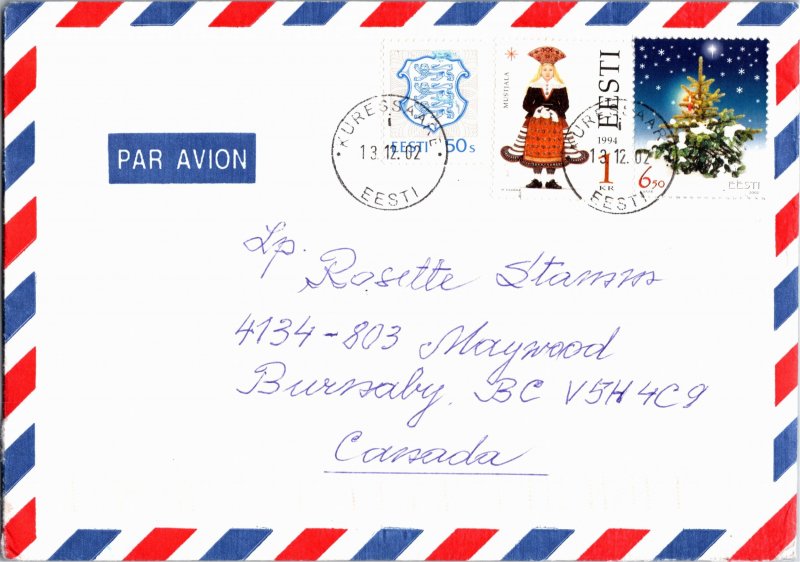 PAR AVION
EESTI 50s
MUSTJALA
EESTI
1994
1
KR
6.50
EESTI
2002
KURESSAARE
i
13.12.02
EESTI
KURESSAARE
13.12.02
EESTI
Lp.
Rosette Stamm
4134-803 Maywood
Burnaby. BC V5H4C9
Canada